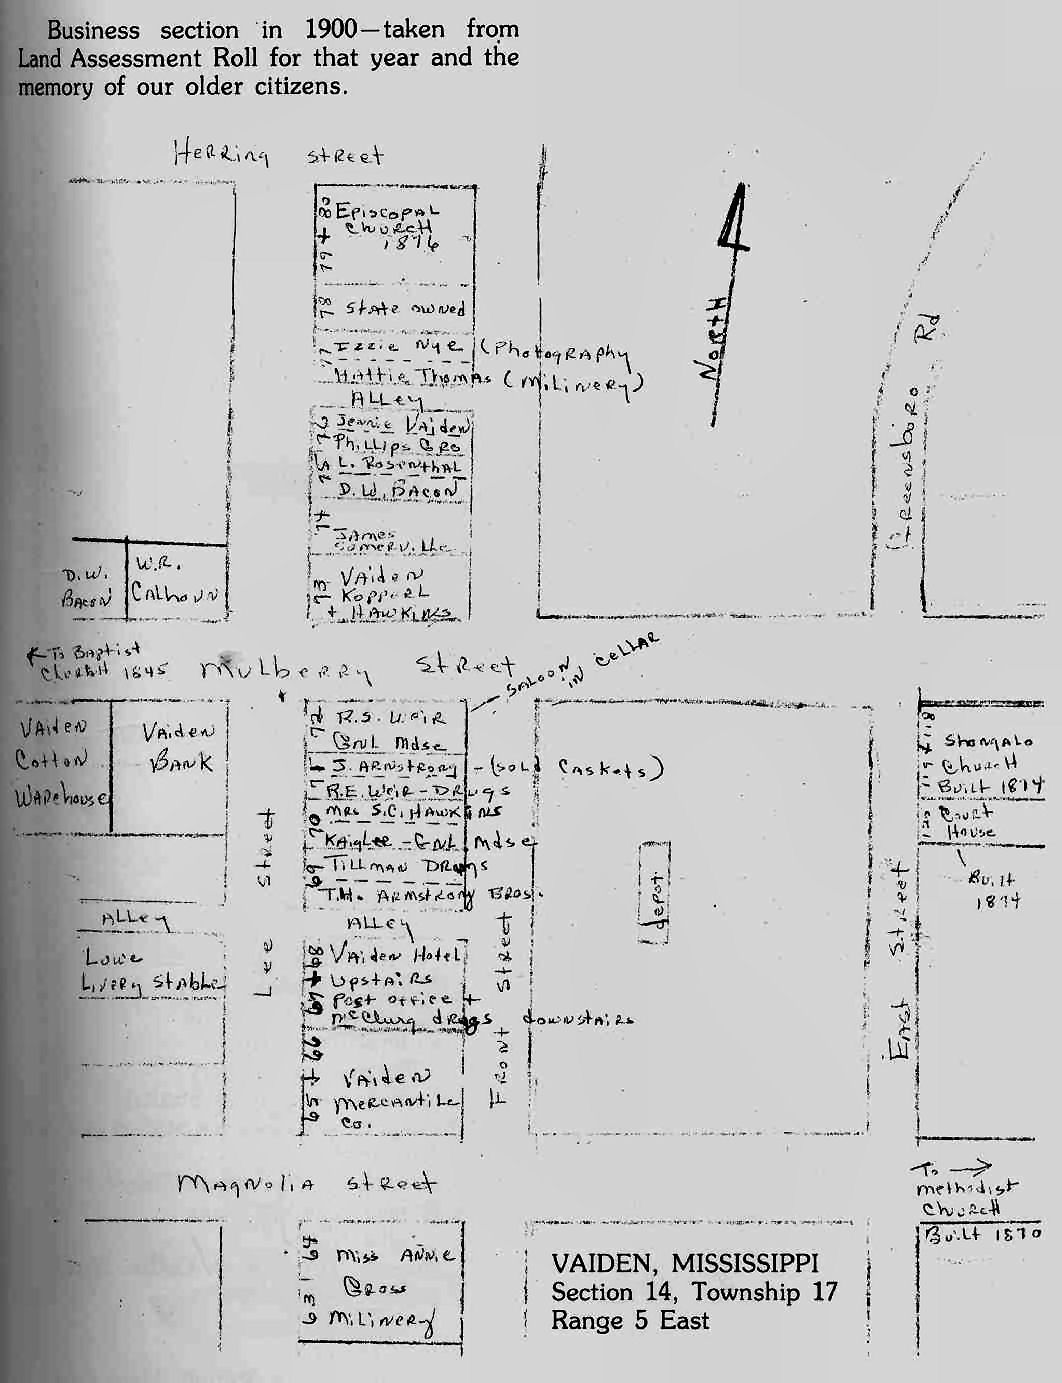 Business section in 1900—taken from
Land Assessment Roll for that year and the
memory of our older citizens.
Herring Street
Episcopal
Church
1876
79 + 80
78 State owned
77 Izzie Nye (Photography
Hattie Thomas (Milinery)
Alley
Jennie Vaiden
Phillips Gro
75 L. Rosenthal
D.W. Bacon
74
James
Somerville
73 Vaiden
Kopperl
+ Hawkins
North
Greensboro Rd
D.W.
Bacon
W.R.
Calhoun
To Baptist
Church 1845
Mulberry Street
Saloon
in Cellar
Vaiden
Cotton
Warehouse
Vaiden
Bank
72 R.S. Weir
Gnl Mdse
71 J. Armstrong - (Sold Caskets)
R.E. Weir - Drugs
70 Mrs S.C. Hawkins
Kaiglee - Gnl Mdse
69 Tillman Drugs
T.H. Armstrong Bros.
Alley
Alley
Lowe
Livery Stable
Lee Street
67 + 68
Vaiden Hotel
Upstairs
Post office +
McClurg drugs downstairs
65 + 66
Vaiden
Mercantile
Co.
Front Street
depot
East Street
Shongalo
Church
Built 1874
Court
House
Built
1874
Magnolia Street
To
Methodist
Church
Built 1870
64
63
Miss Annie
Gross
Milinery
VAIDEN, MISSISSIPPI
Section 14, Township 17
Range 5 East